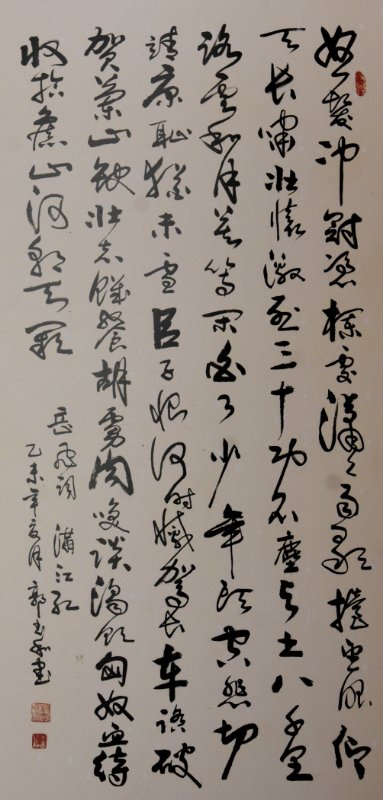 怒髮冲冠憑欄處瀟々雨歇擡望眼仰
天長嘯壯懷激烈三十功名塵与土八千里
路雲和月莫等闲白了少年頭空悲切
靖康恥猶未雪臣子恨何時滅駕長車踏破
賀蘭山缺壯志饑餐胡虜肉笑談渴飲匈奴血待
收拾舊山河朝天闕
岳飛詞 滿江紅
乙未年亥月 郭書